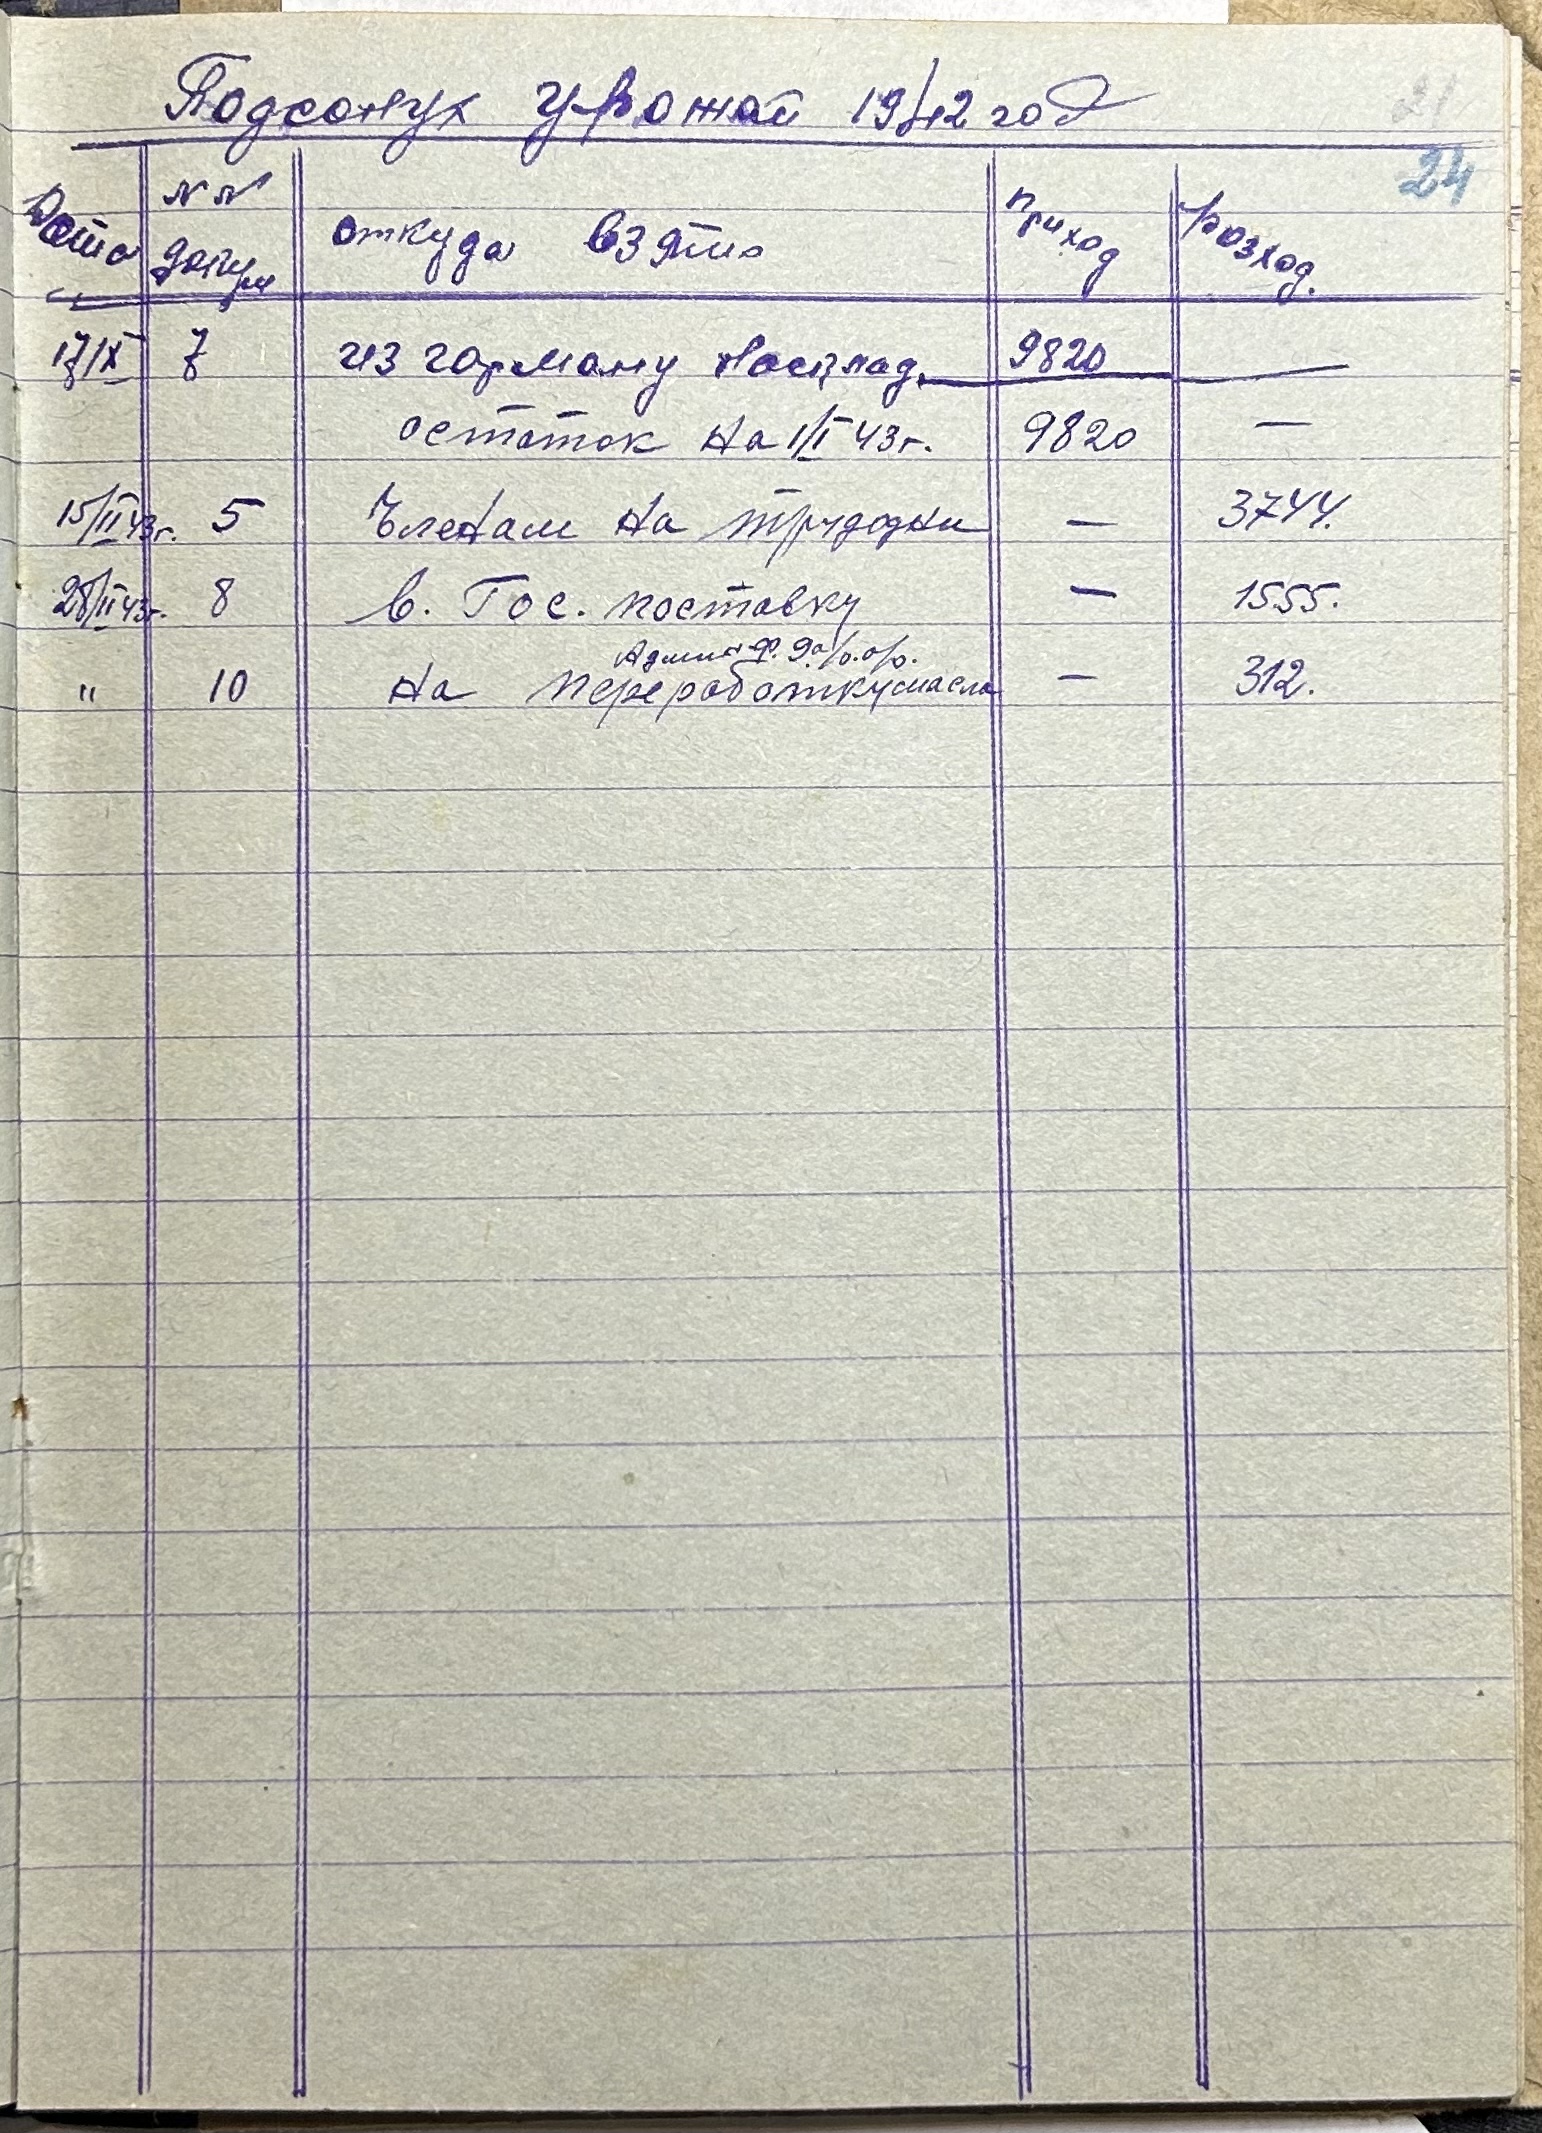 Подсонух урожай 1942 год
21
24
Дата
N N докум
откуда взято
приход
розход.
17/IX 7 из гарману насклад. 9820 —
остаток на 1/I 43 г. 9820 —
15/II 43 г. 5 Членам на трудодни — 3744.
28/II 43 г. 8 в. Гос. поставку — 1555.
" 10 на переработку масла — 312.